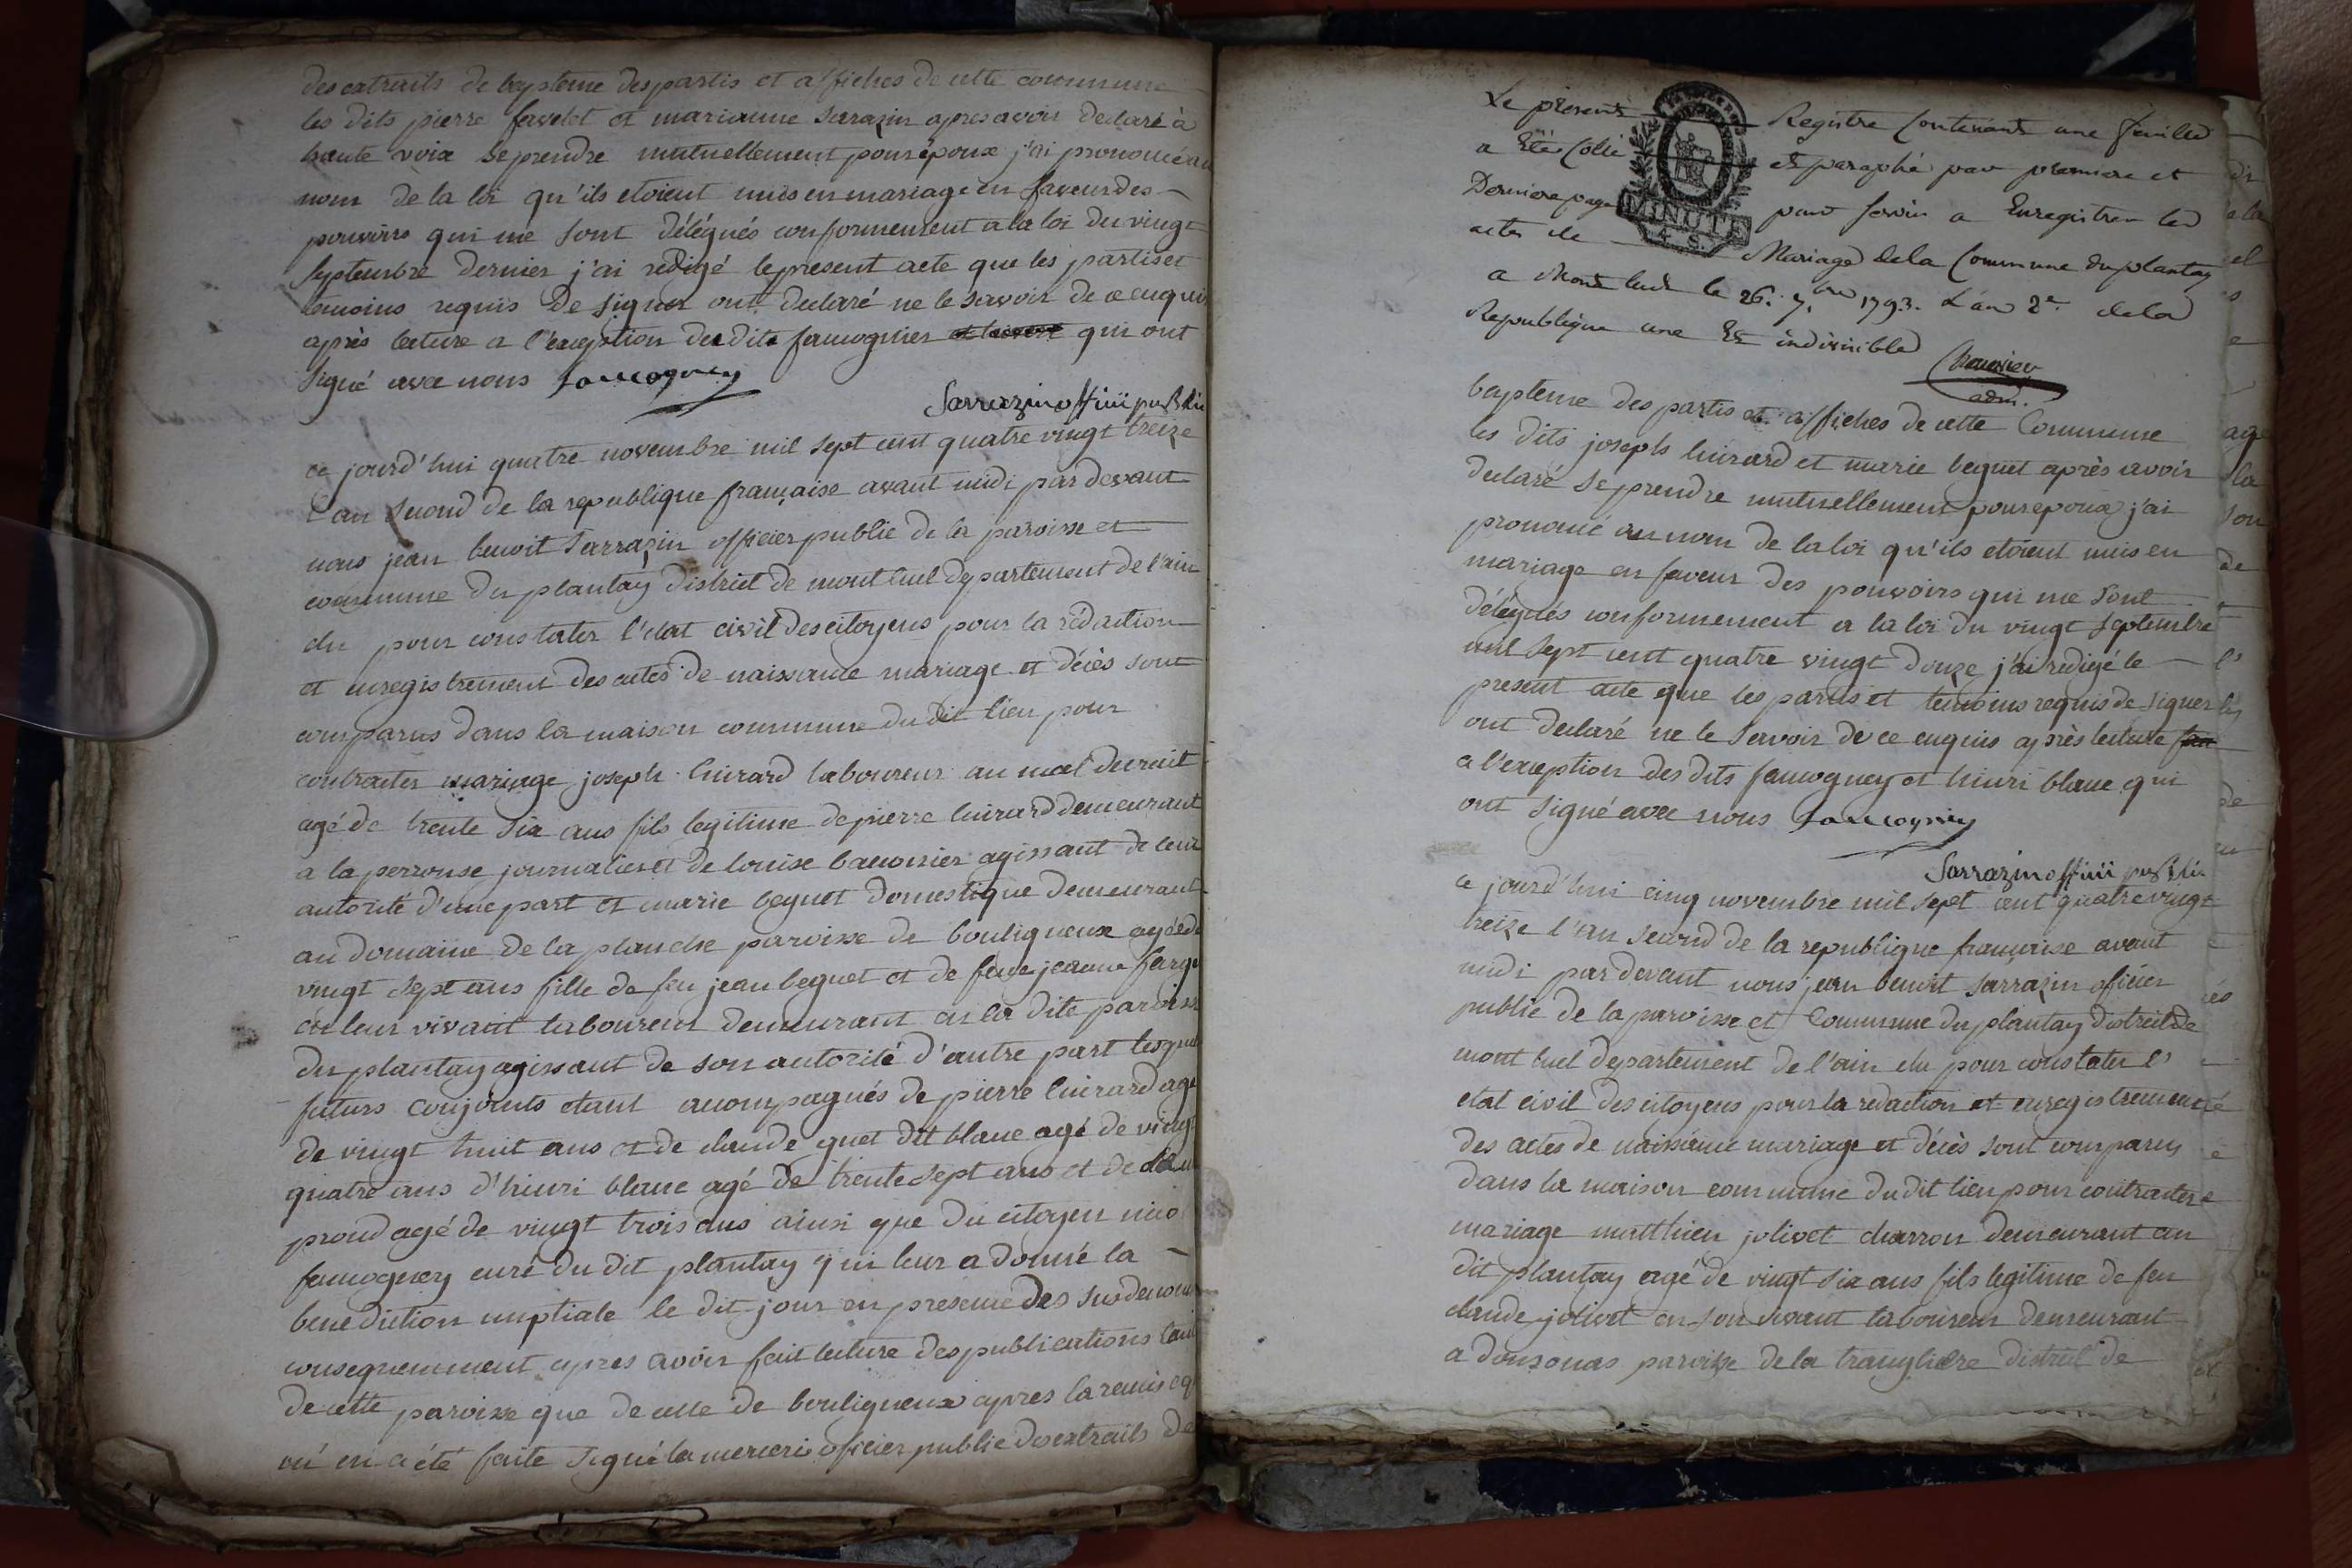 des extraits de bapteme des partis et affiches de cette commune
les dits pierre favelet et marianne sarazin apres avoir declaré à
haute voix se prendre mutuellement pour époux j'ai prononcé au
nom de la loi qu'ils etoient unis en mariage en faveur des
pouvoirs qui me sont délégués conformement a la loi du vingt
septembre dernier j'ai redigé le present acte que les partis et
temoins requis de signer ont declaré ne le savoir de ce enquis
après lecture a l'exception du dits faucogniey qui ont
signé avec nous faucogney
Sarrazin offiii publiu
ce jourd'hui quatre novembre mil sept cent quatre vingt treize
l'an second de la republique française avant midi par devant
nous jean benoit sarrazin officier public de la paroisse et
commune du plantay district de mont luel departement de l'ain
elu pour constater l'etat civil des citoyens pour la rédaction
et enregistrement des actes de naissance mariage et décès sont
comparus dans la maison commune du dit lieu pour
contracter mariage joseph huirard laboureur au
agé de trente six ans fils legitime de pierre huirard demeurant
a la perrouse journalier et de louise agissant de leur
autorité d'une part et marie beguet domestique demeurant
au domaine de la planche paroisse de bouligneux agée de
vingt sept ans fille de feu jean beguet et de feue jeanne
en leur vivant laboureur demeurant en la dite paroisse
du plantay agissant de son autorité d'autre part lesquels
futurs conjoints etant acompagnés de pierre huirard agé
de vingt huit ans et de claude guet dit blanc agé de vingt
quatre ans d'hinri blanc agé de trente sept ans et de
proud agé de vingt trois ans ainsi que du citoyen
faucogney curé du dit plantay qui leur a donné la
benediction nuptiale le dit jour en presence des susdenom
consequemment apres avoir fait lecture des publications tant
de cette paroisse que de celle de bouligneux apres la remise q
ui en a été faite signé la mercerie officier public des extraits de
Le présent Registre Contenant une feuille
a Eté Cotté et paraphé par premiere et
Derniere page pour servir a Enregistrer les
actes de Mariage de la Commune du plantay
MINUTE
4 S.
a Mont luel le 26. 7.bre 1793. L'an 2e. de la
Republique une Et indivisible
adm.
bapteme des partis et affiches de cette Commune
les dits joseph huirard et marie beguet après avoir
declaré se prendre mutuellement pour epoux j'ai
prononcé au nom de la loi qu'ils etoient unis en
mariage en faveur des pouvoirs qui me sont
délégués conformement a la loi du vingt septembre
mil sept cent quatre vingt douze j'ai redigé le
present acte que les partis et temoins requis de signer
ont declaré ne le savoir de ce enquis après lecture
a l'exception des dits faucogney et hinri blanc qui
ont signé avec nous faucogney
Sarrazin offiii publiu
ce jourd'hui cinq novembre mil sept cent quatre vingt
treize l'an second de la republique française avant
midi par devant nous jean benoit sarrazin officier
public de la paroisse et Commune du plantay district de
mont luel departement de l'ain elu pour constater l'
etat civil des citoyens pour la redaction et enregistrement
des actes de naissance mariage et décès sont comparus
dans la maison commune du dit lieu pour contracter
mariage matthieu jolivet charron demeurant au
dit plantay agé de vingt six ans fils legitime de feu
claude jolivet en son vivant laboureur demeurant
a donsonas paroisse de la tranglière district de